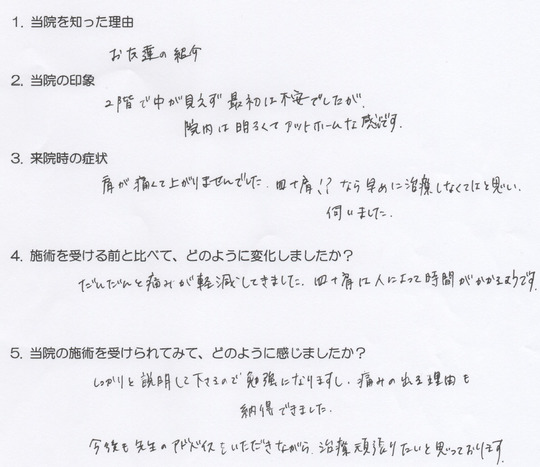 1. 当院を知った理由
お友達の紹介
2. 当院の印象
2階で中が見えず 最初は不安でしたが、
院内は明るくてアットホームな感じです。
3. 来院時の症状
肩が痛くて上がりませんでした。四十肩!? なら早めに治療しなくてはと思い、
伺いました。
4. 施術を受ける前と比べて、どのように変化しましたか？
だんだんと痛みが軽減してきました。四十肩は人によって時間がかかるようです。
5. 当院の施術を受けられてみて、どのように感じましたか？
しっかりと説明して下さるので勉強になりますし、痛みの出る理由も
納得できました。
今後も先生のアドバイスをいただきながら、治療頑張りたいと思っております。